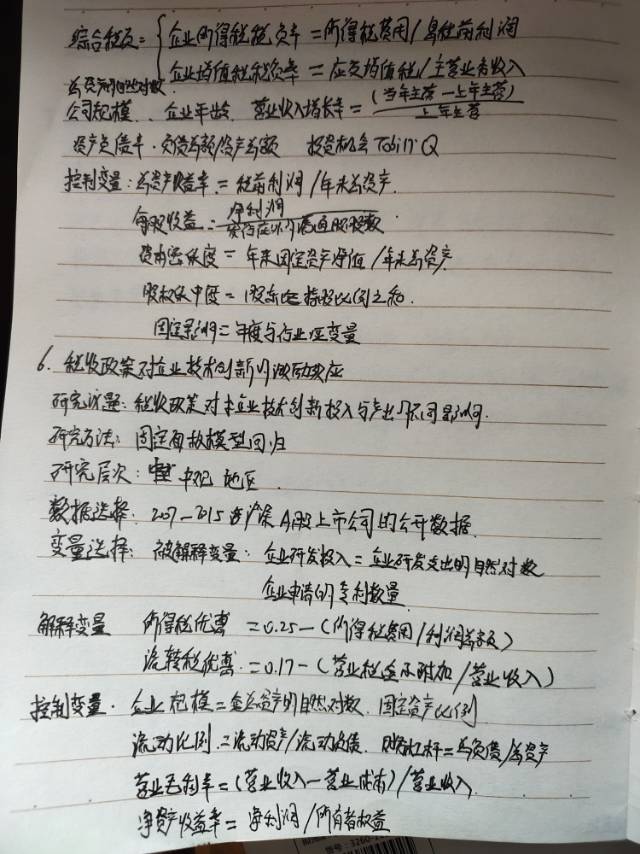 综合税负 = { 企业所得税税负率 = 所得税费用/息税前利润
企业增值税税负率 = 应交增值税/主营业务收入
总资产的自然对数
公司规模、企业年龄、营业收入增长率 = (当年主营-上年主营)/上年主营
资产负债率·负债总额/资产总额 投资机会 Tobin Q
控制变量:总资产收益率 = 税前利润/年末总资产.
每股收益 = 净利润/发行在外的普通股股数
资本密集度 = 年末固定资产净值/年末总资产.
股权集中度 = 股东持股比例之和.
固定影响 = 年度与行业哑变量
6. 税收政策对企业技术创新的激励效应
研究议题:税收政策对企业技术创新投入与产出的不同影响.
研究方法:固定面板模型回归
研究层次:中观 地区
数据选择:2007-2015 沪深A股上市公司的公开数据
变量选择:被解释变量:企业研发投入 = 企业研发支出的自然对数
企业申请的专利数量
解释变量 所得税优惠 = 0.25-(所得税费用/利润总额)
流转税优惠 = 0.17-(营业税金及附加/营业收入)
控制变量·企业规模 = 企业总资产的自然对数、固定资产比例
流动比例 = 流动资产/流动负债、财务杠杆 = 总负债/总资产
营业毛利率 = (营业收入-营业成本)/营业收入
净资产收益率 = 净利润/所有者权益